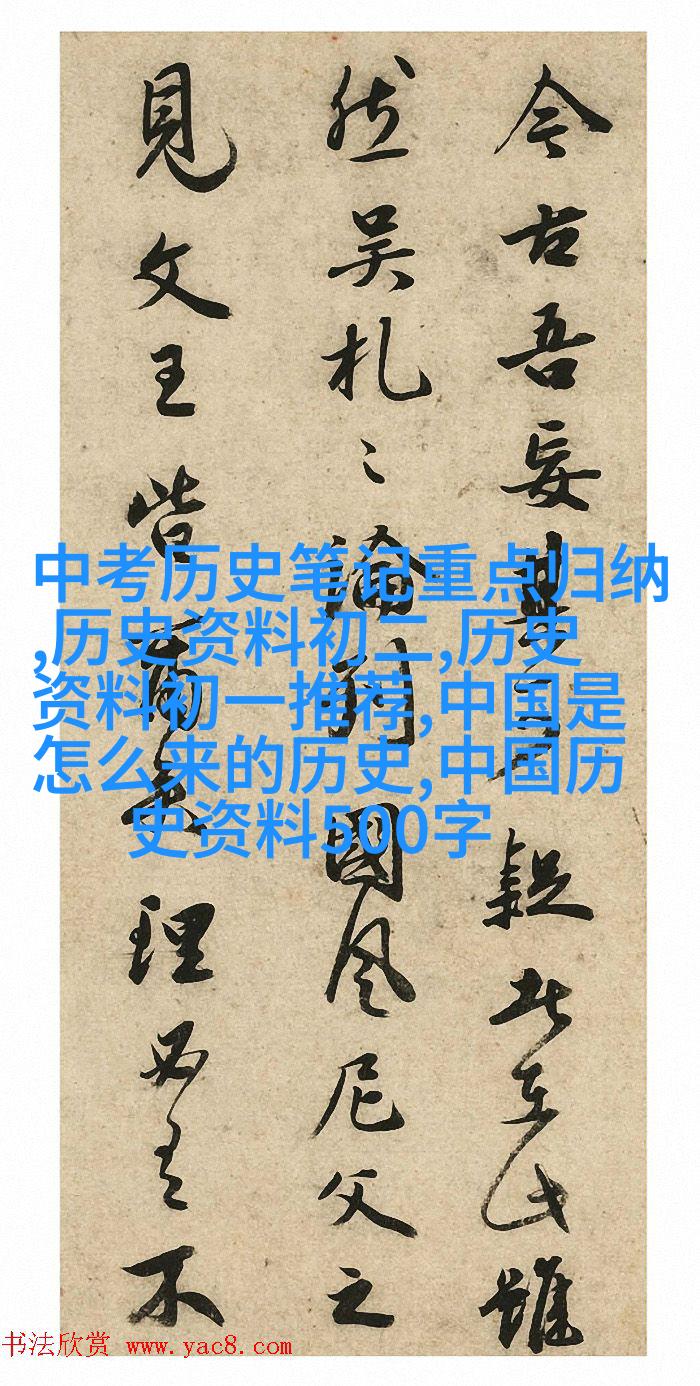 今古吾妄疑在此雖
然吴札〻論國風尼父之
見文王皆理必有不
中考历史笔记重点归纳
,历史资料初二,历史
资料初一推荐,中国是
怎么来的历史,中国历
史资料500字
书法欣赏 www.yac8.com